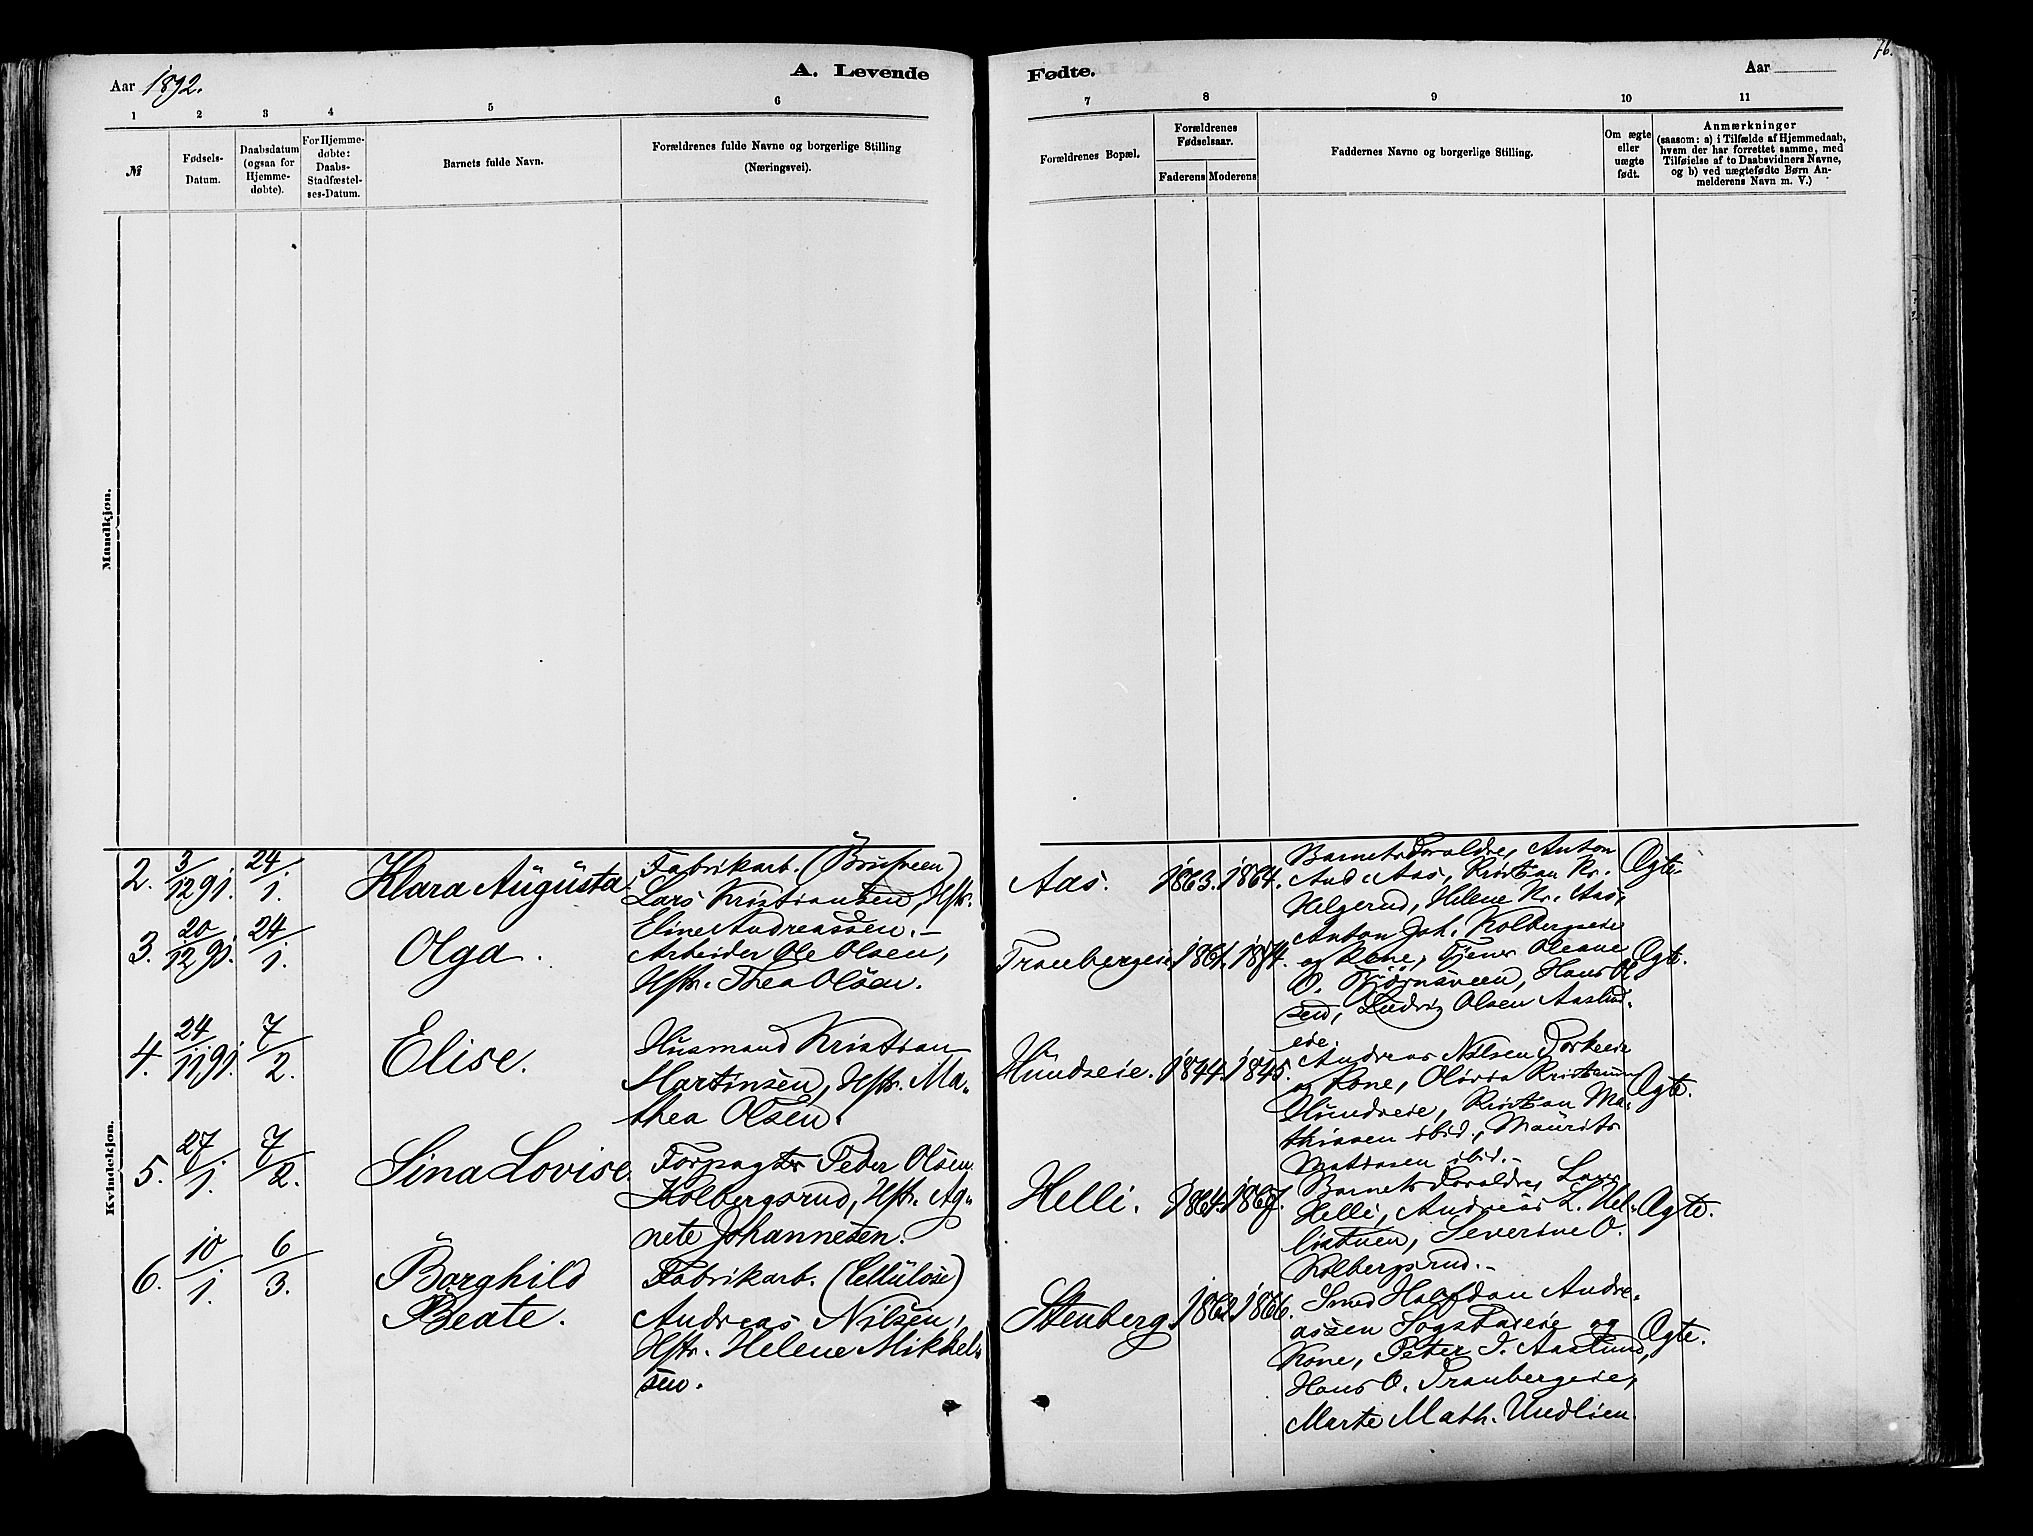 Aar 1892.
A. Levende
Fødte.
Aar
76.
1 2 3 4 5 6 7 8 9 10 11
№
Fødsels-
Datum.
Daabsdatum
(ogsaa for
Hjemme-
døbte).
For Hjemme-
døbte:
Daabs-
Stadfæstel-
ses-Datum.
Barnets fulde Navn.
Forældrenes fulde Navne og borgerlige Stilling
(Næringsvei).
Forældrenes Bopæl.
Forældrenes
Fødselsaar.
Faderens Moderens
Faddernes Navne og borgerlige Stilling.
Om ægte
eller
uægte
født.
Anmærkninger
(saasom: a) i Tilfælde af Hjemmedaab,
hvem der har forrettet samme, med
Tilføielse af to Daabsvidners Navne,
og b) ved uægtefødte Børn An-
melderens Navn m. V.)
Mandkjøn.
Kvindekjøn.
2. 3/12 91. 24/1. Klara Augusta.
Fabrikarb. (Brusveen)
Lars Kristiansen, Hstr.
Eline Andreassen.
Aas. 1863. 1864.
Barnets Foraldre, Anton
And. Aas, Kristian Kr.
Helgerud, Helene Kr. Aas,
Ægte.
3. 20/12 91. 24/1. Olga.
Arbeider Ole Olsen,
Hstr. Thea Olsen.
Tranbergeie. 1861. 1874.
Anton Joh. Kolbergseie
og Kone, Tjener Oleane
O. Bjørnsveen, Hans Ol
sen, Ludvig Olsen Aaslund-
eie.
Ægte.
4. 24/11 91. 7/2. Elise.
Husmand Kristian
Martinsen, Hstr. Ma-
thea Olsen.
Hundseie. 1844. 1845.
Andreas Nilsen
og Kone, Oliva
Hundseie, Kristian Ma-
thissen ibid., Maurits
Matiasen ibid.
Ægte.
5. 27/1. 7/2. Sina Lovise.
Forpagter Peder Olsen
Kolbergsrud, Hstr. Ag-
nete Johannesen.
Helli. 1864. 1867.
Barnets Foraldre, Lars
Helli, Andreas L. Hel-
listuen, Severine O.
Kolbergsrud.
Ægte.
6. 10/1. 6/3. Borghild
Beate.
Fabrikarb. (Cellulose)
Andreas Nilsen,
Hstr. Helene Mikkel-
sen.
Stenberg 1862 1866.
Smed Halfdan Andre-
assen Sogstadeie og
Kone, Peter J. Aaslund,
Hans O. Tranbergeie,
Marte Math. Undlien.
Ægte.